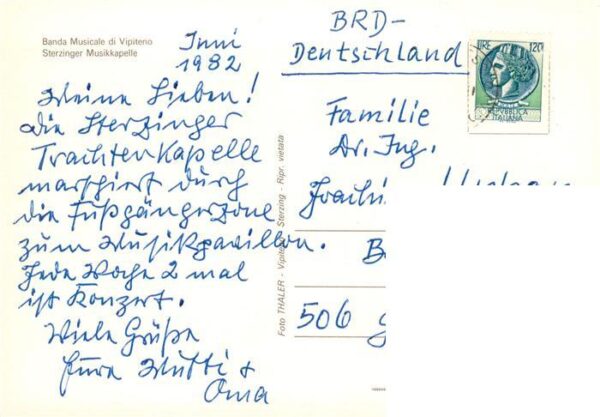 Banda Musicale di Vipiteno
Sterzinger Musikkapelle
Juni
1982
Meine Lieben!
Die Sterzinger
Trachtenkapelle
marschiert durch
die Fußgängerzone
zum Musikpavillon.
Jede Woche 2 mal
ist Konzert.
Viele Grüße
Eure Mutti +
Oma
Foto THALER - Vipiteno Sterzing - Ripr. vietata
BRD-
Deutschland
LIRE 120
REPUBBLICA
ITALIANA
Familie
Dr. Ing.
506